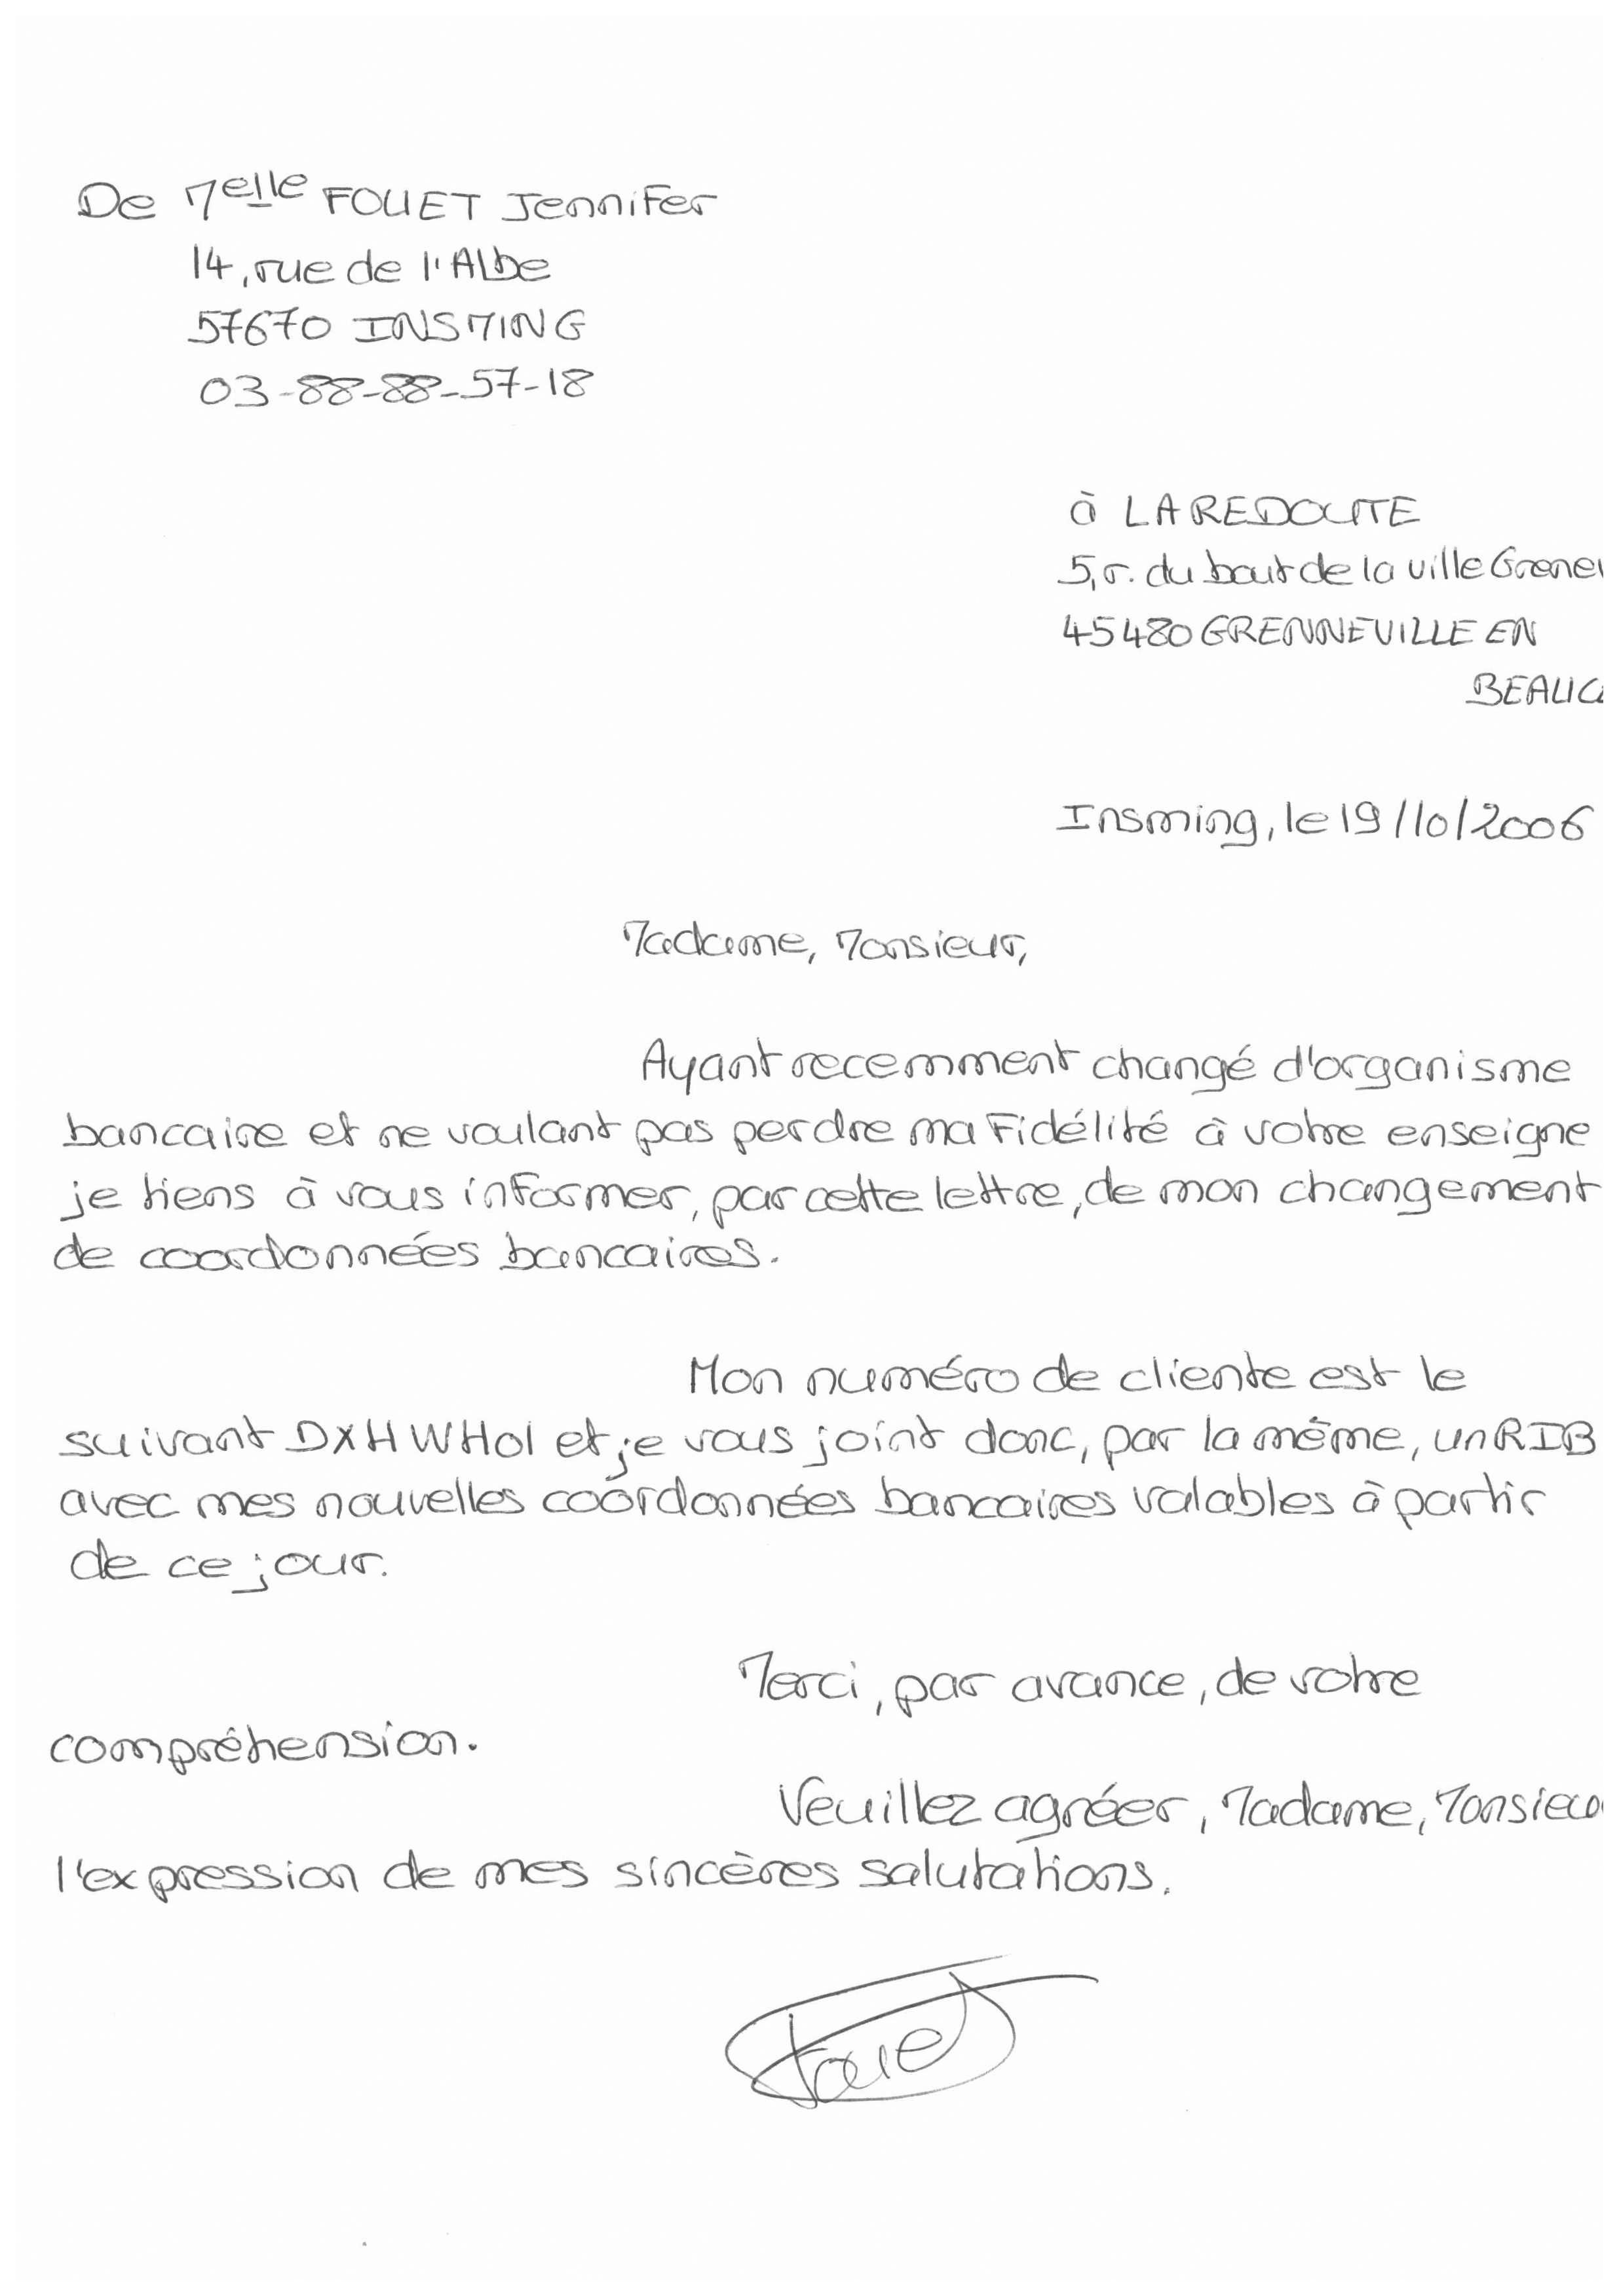 De Melle FOUET Jennifer
14, rue de l'Albe
57670 INSMING
03-88-88-57-18
à LA REDOUTE
5, r. du bout de la ville Grenev
45480 GRENNEVILLE EN
BEAUCE
Insming, le 19/10/2006
Madame, Monsieur,
Ayant recemment changé d'organisme
bancaire et ne voulant pas perdre ma fidélité à votre enseigne
je tiens à vous informer, par cette lettre, de mon changement
de coordonnées bancaires.
Mon numéro de cliente est le
suivant DXHWH01 et je vous joint donc, par la même, un RIB
avec mes nouvelles coordonnées bancaires valables à partir
de ce jour.
Merci, par avance, de votre
compréhension.
Veuillez agréer, Madame, Monsieur
l'expression de mes sincères salutations.
Fouet